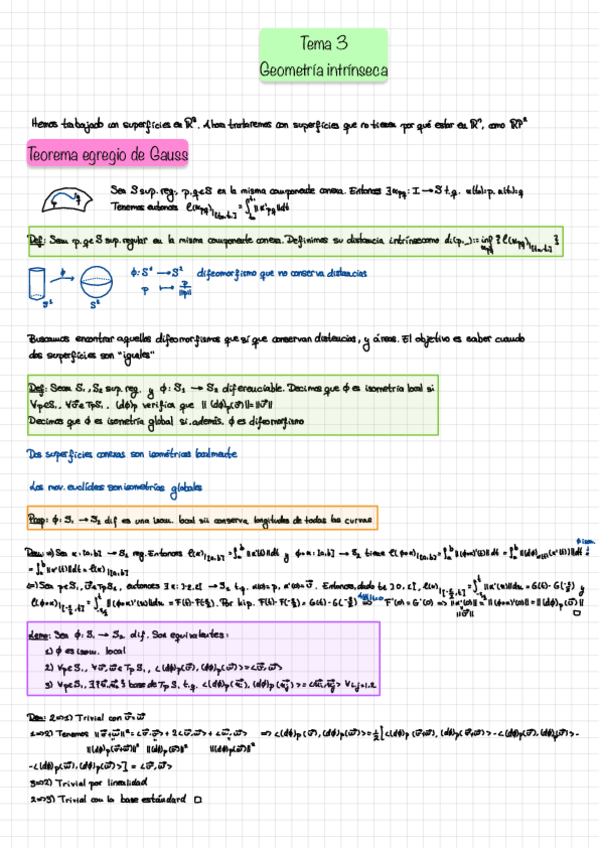 Tema 3
Geometría intrínseca
Hemos trabajado con superficies en R³. Ahora trataremos con superficies que no tienen por qué estar en Rⁿ, como RP²
Teorema egregio de Gauss
Sea S sup. reg., p,q∈S en la misma componente conexa. Entonces ∃ αpq: I → S t.q. α(a)=p, α(b)=q
Tenemos entonces ℓ(αpq)|[a,b] = ∫ₐᵇ ||α'pq||dt
Def: Sean p,q∈S sup. regular en la misma componente conexa. Definimos su distancia intrínseca como di(p,_):= inf {ℓ(αpq)|[a,b]}
ϕ
S²
ϕ: S¹ → S² difeomorfismo que no conserva distancias
p ↦ p/||p||
Buscamos encontrar aquellos difeomorfismos que sí que conservan distancias, y áreas. El objetivo es saber cuando
dos superficies son "iguales"
Def: Sean S₁, S₂ sup. reg. y ϕ: S₁ → S₂ diferenciable. Decimos que ϕ es isometría local si
∀p∈S₁, ∀v⃗∈TpS₁, (dϕ)p verifica que ||(dϕ)p(v⃗)||=||v⃗||
Decimos que ϕ es isometría global si, además, ϕ es difeomorfismo
Dos superficies conexas son isométricas localmente
Los mov. euclídeos son isometrías globales
Prop: ϕ: S₁ → S₂ dif es una isom. local sii conserva longitudes de todas las curvas
Dem: ⇒) Sea α: [a,b] → S₁ reg. Entonces ℓ(α)|[a,b] = ∫ₐᵇ ||α'(t)||dt y ϕ∘α: [a,b] → S₂ tiene ℓ(ϕ∘α)|[a,b] = ∫ₐᵇ ||(ϕ∘α)'(t)||dt = ∫ₐᵇ ||(dϕ)α(t)(α'(t))||dt =
= ∫ₐᵇ ||α'(t)||dt = ℓ(α)|[a,b]
⇐) Sea p∈S₁, v⃗∈TpS₁, entonces ∃ α: ]-ε,ε[ → S₁ t.q. α(0)=p, α'(0)=v⃗. Entonces, dado
Lema: Sea ϕ: S₁ → S₂ dif. Son equivalentes:
1) ϕ es isom. local
2) ∀p∈S₁, ∀v⃗,w⃗∈TpS₁, <(dϕ)p(v⃗),(dϕ)p(w⃗)>=<v⃗,w⃗>
3) ∀p∈S₁, ∃ base de TpS₁ t.q.
Dem: 2⇒1) Trivial con v⃗=w⃗
1⇒2) Tenemos ||v⃗+w⃗||²=<v⃗,v⃗>+2<v⃗,w⃗>+<w⃗,w⃗> ⇒ <(dϕ)p(v⃗),(dϕ)p(w⃗)>=½[<(dϕ)p(v⃗+w⃗),(dϕ)p(v⃗+w⃗)>-<(dϕ)p(v⃗),(dϕ)p(v⃗)>-
||(dϕ)p(v⃗+w⃗)||² ||(dϕ)p(v⃗)||² ||(dϕ)p(w⃗)||²
-<(dϕ)p(w⃗),(dϕ)p(w⃗)>] = <v⃗,w⃗>
3⇒2) Trivial por linealidad
2⇒3) Trivial con la base estándard □